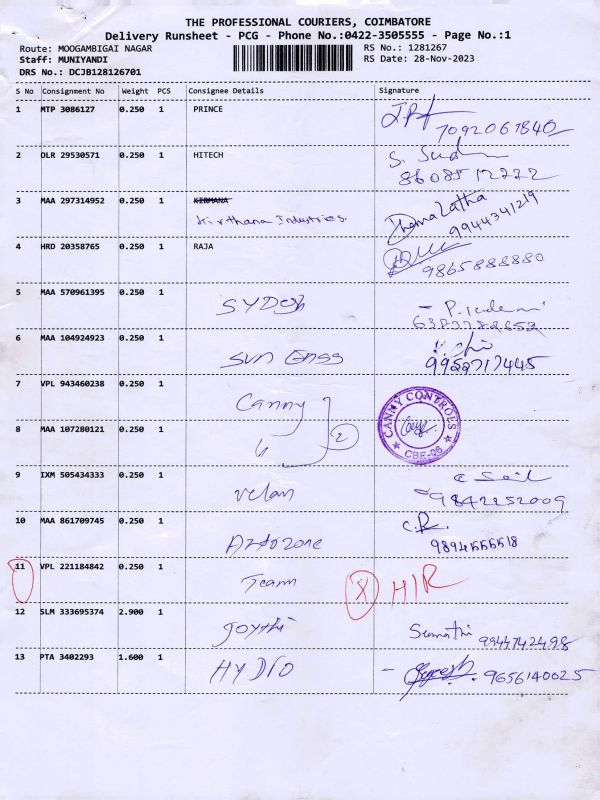 THE PROFESSIONAL COURIERS, COIMBATORE
Delivery Runsheet - PCG - Phone No.:0422-3505555 - Page No.:1
Route: MOOGAMBIGAI NAGAR RS No.: 1281267
Staff: MUNIYANDI RS Date: 28-Nov-2023
DRS No.: DCJB128126701
S No Consignment No Weight PCS Consignee Details Signature
1 MTP 3086127 0.250 1 PRINCE
7092061840
2 OLR 29530571 0.250 1 HITECH
8608512222
3 MAA 297314952 0.250 1 KIRMANA
Kirthana Industries. Hemalatha
9944341219
4 HRD 20358765 0.250 1 RAJA
9865888880
5 MAA 570961395 0.250 1 SYDesh
6 MAA 104924923 0.250 1 Sun Engg
9952717445
7 VPL 943460238 0.250 1 Canny
8 MAA 107280121 0.250 1 2
CANNY CONTROLS
CBE-06
9 IXM 505434333 0.250 1 Velan
9842252009
10 MAA 861709745 0.250 1 Artozone
C.R.
11 VPL 221184842 0.250 1 Team X HIR
12 SLM 333695374 2.900 1 Joythi Sumathi 9944742498
13 PTA 3402293 1.600 1 HYDRO 9656140025